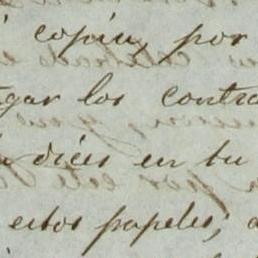 copia, por
gar los contra
dices en tu
estos papeles; a